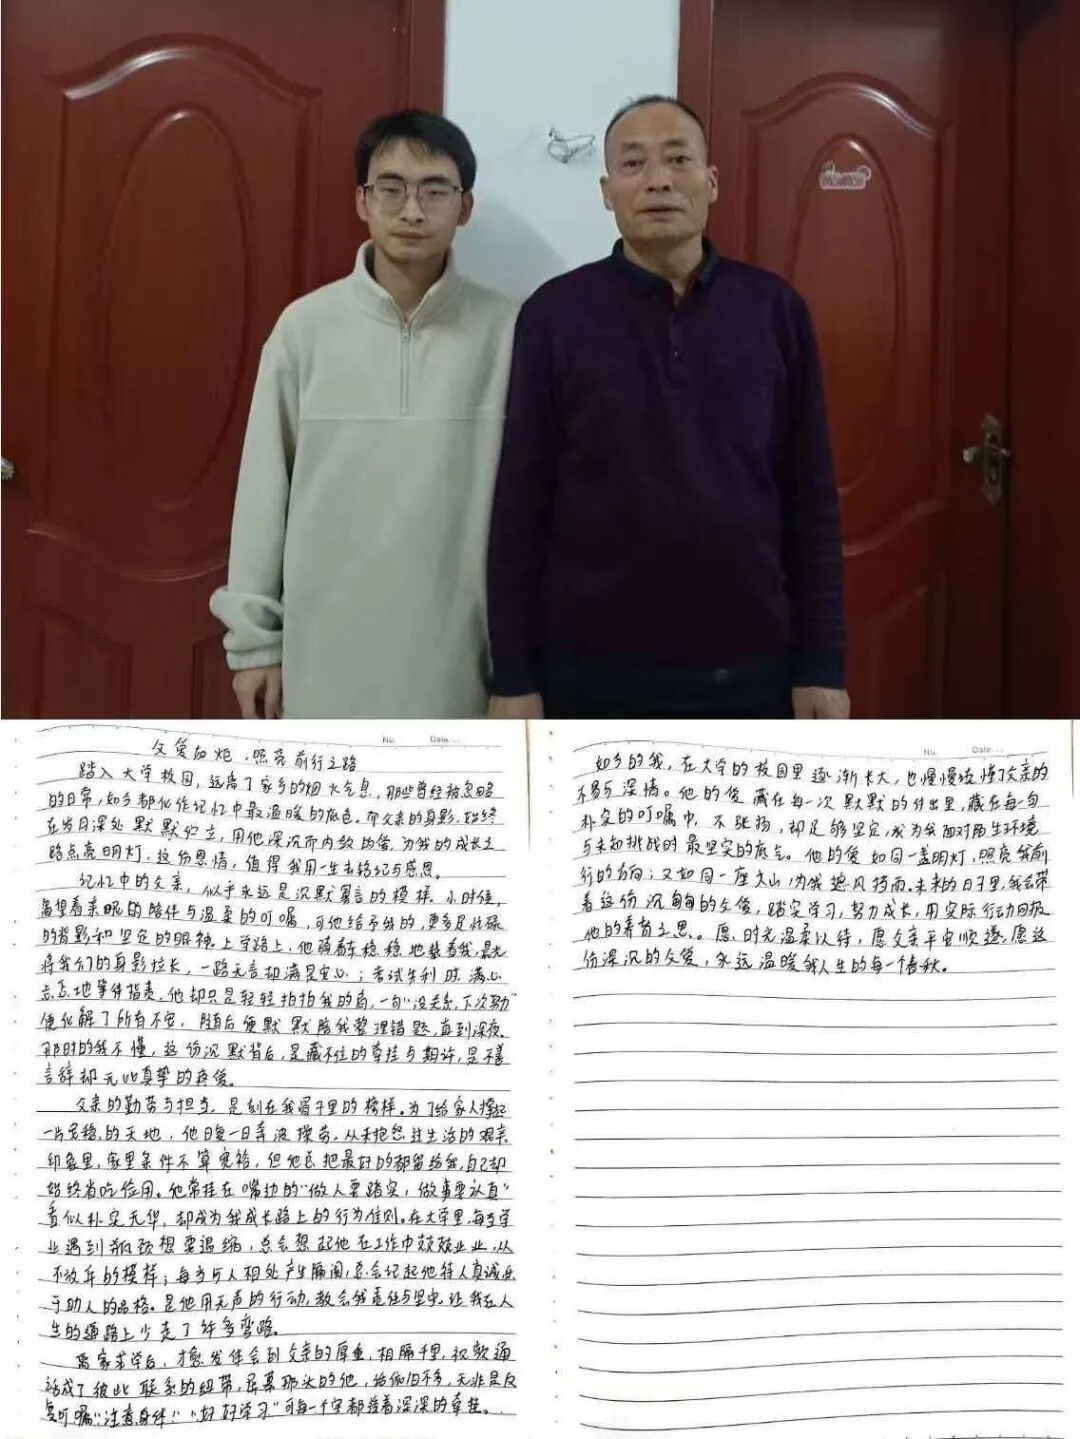 No. Date
父爱如炬，照亮前行之路
踏入大学校园，远离了家乡的烟火气息，那些曾经被忽略
的日常，如今都化作记忆中最温暖的底色。而父亲的身影，始终
在岁月深处默默伫立，用他深沉而内敛的爱，为我的成长之
路点亮明灯，这份恩情，值得我用一生去铭记与感恩。
记忆中的父亲，似乎永远是沉默寡言的模样。小时候，
渴望着亲昵的陪伴与温柔的叮嘱，可他给予我的，更多是忙碌
的背影和坚定的眼神。上学路上，他骑着车稳稳地载着我，晨光
将我们的身影拉长，一路无言却满是安心；考试失利时，满心
忐忑地等待指责，他却只是轻轻拍拍我的肩，一句“没关系，下次努力”
便化解了所有不安，随后便默默陪我整理错题，直到深夜。
那时的我不懂，这份沉默背后，是藏不住的牵挂与期许，是不善
言辞却无比真挚的疼爱。
父亲的勤劳与担当，是刻在我骨子里的榜样。为了给家人撑起
一片安稳的天地，他日复一日奔波操劳，从未抱怨过生活的艰辛。
印象里，家里条件不算宽裕，但他总把最好的都留给我，自己却
始终省吃俭用。他常挂在嘴边的“做人要踏实，做事要认真”
看似朴实无华，却成为我成长路上的行为准则。在大学里，每当学
业遇到瓶颈想要退缩，总会想起他在工作中兢兢业业、从
不放弃的模样；每当与人相处产生隔阂，总会记起他待人真诚、乐
于助人的品格。是他用无声的行动，教会我责任与坚守，让我在人
生的道路上少走了许多弯路。
离家求学后，才愈发体会到父亲的厚重，相隔千里，视频通
话成了彼此联系的纽带，屏幕那头的他，话依旧不多，无非是反
复叮嘱“注意身体”“好好学习”可每一个字都藏着深深的牵挂。
No. Date
如今的我，在大学的校园里逐渐长大，也慢慢读懂了父亲的
不易与深情。他的爱藏在每一次默默的付出里，藏在每一句
朴实的叮嘱中，不张扬，却足够坚定，成为我面对陌生环境
与未知挑战时最坚实的底气。他的爱如同一盏明灯，照亮我前
行的方向；又如同一座大山，为我遮风挡雨。未来的日子里，我会带
着这份沉甸甸的父爱，踏实学习，努力成长，用实际行动回报
他的养育之恩。愿时光温柔以待，愿父亲平安顺遂，愿这
份深沉的父爱，永远温暖我人生的每一个春秋。